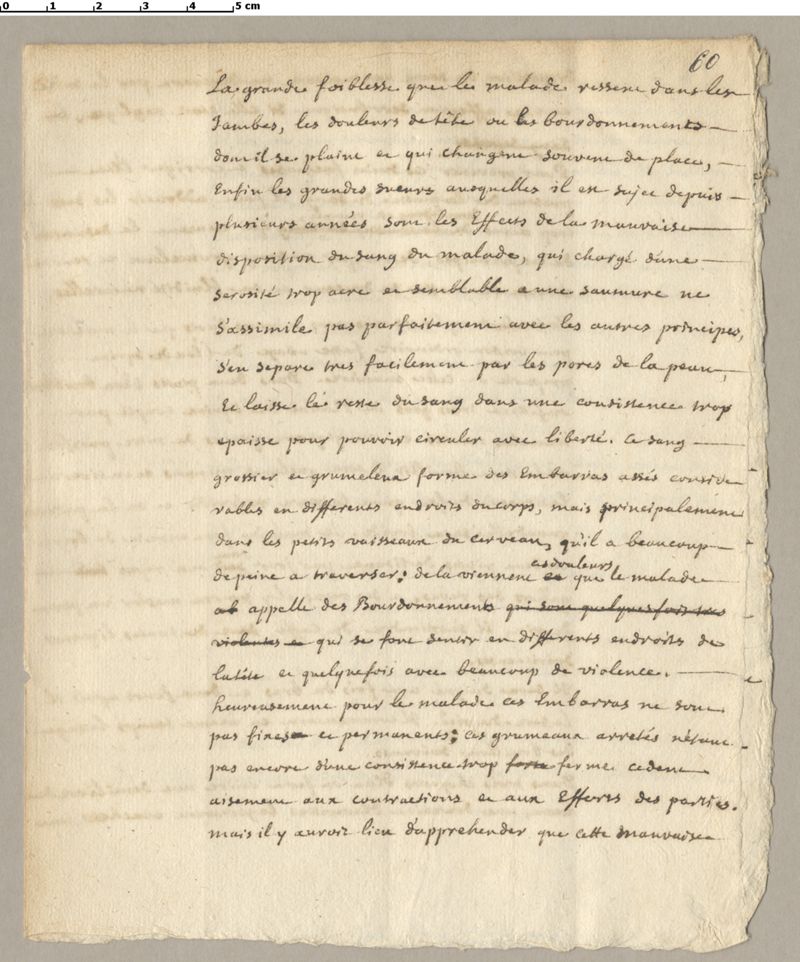 0 1 2 3 4 5 cm
60
La grande foiblesse que le malade ressent dans les
Jambes, les douleurs de tête ou les bourdonnements
dont il se plaint et qui changent souvent de place,
Enfin les grandes sueurs ausquelles il est sujet depuis
plusieurs années sont les Effects de la mauvaise
disposition du sang du malade, qui chargé d'une
serosité trop acre et semblable a une saumure ne
s'assimile pas parfaitement avec les autres principes,
s'en separe tres facilement par les pores de la peau,
Et laisse le reste du sang dans une consistence trop
epaisse pour pouvoir circuler avec liberté. ce sang
grossier et grumeleux forme des Embarras assés conside
rables en differents endroits du corps, mais principalement
dans les petits vaisseaux du cerveau, qu'il a beaucoup
ces douleurs
de peine a traverser; de la viennent et que le malade
ab appelle des Bourdonnements qui sont quelques fois tres
violentes et qui se font sentir en differents endroits de
la tête et quelquefois avec beaucoup de violence.
heureusement pour le malade ces Embarras ne sont
pas fixes et permanents; ces grumeaux arretés n'étant
pas encore d'une consistence trop forte ferme cedent
aisement aux contractions et aux Efforts des parties.
mais il y auroit lieu d'apprehender que cette mauvaise